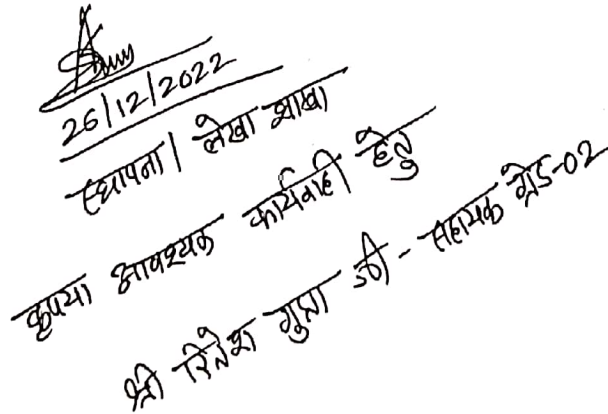 26/12/2022
स्थापना / लेखा शाखा
कृपया आवश्यक कार्यवाही हेतु
श्री रितेश गुप्ता जी - सहायक ग्रेड-02